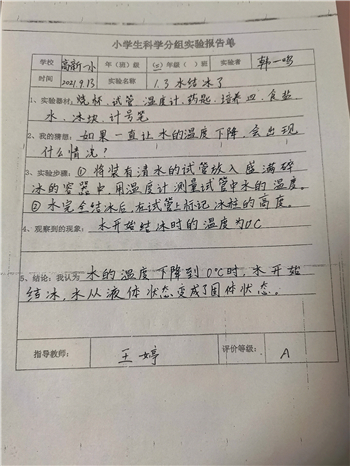 小学生科学分组实验报告单
学校 高新一小 年（班）级 （ ）年级（ ）班 实验者 韩一鸣
时间 2021.9.13 实验名称 1.3 水结冰了
1、实验器材：烧杯、试管、温度计、药匙、培养皿、食盐、
水、冰块、计号笔
2、我的猜想：如果一直让水的温度下降，会出现
什么情况？
3、实验步骤：①将装有清水的试管放入盛满碎
冰的容器中，用温度计测量试管中水的温度。
②水完全结冰后，在试管上标记冰柱的高度。
4、观察到的现象：水开始结冰时的温度为0℃
5、结论：我认为 水的温度下降到0℃时，水开始
结冰，水从液体状态变成了固体状态。
指导教师： 王婷 评价等级： A